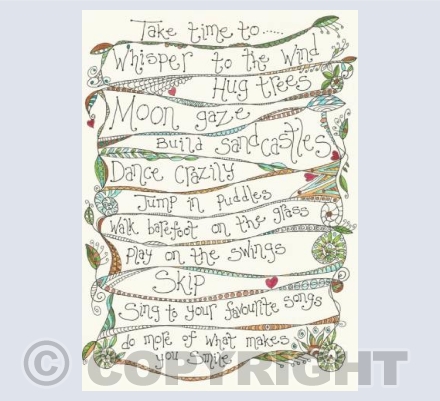 Take time to.....
Whisper to the wind
Hug trees
Moon gaze
Build sandcastles
Dance crazily
Jump in puddles
Walk barefoot on the grass
Play on the swings
Skip
Sing to your favourite songs
do more of what makes
you smile
© COPYRIGHT